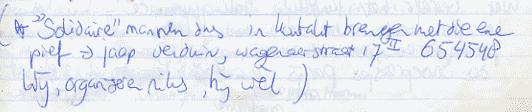 ( "Solidaire" mannen dus in kontakt brengen met die ene
pief → Jaap Verduin, wagenaerstraat 17 II 654548
Wij, organiseren niks, hij wèl )